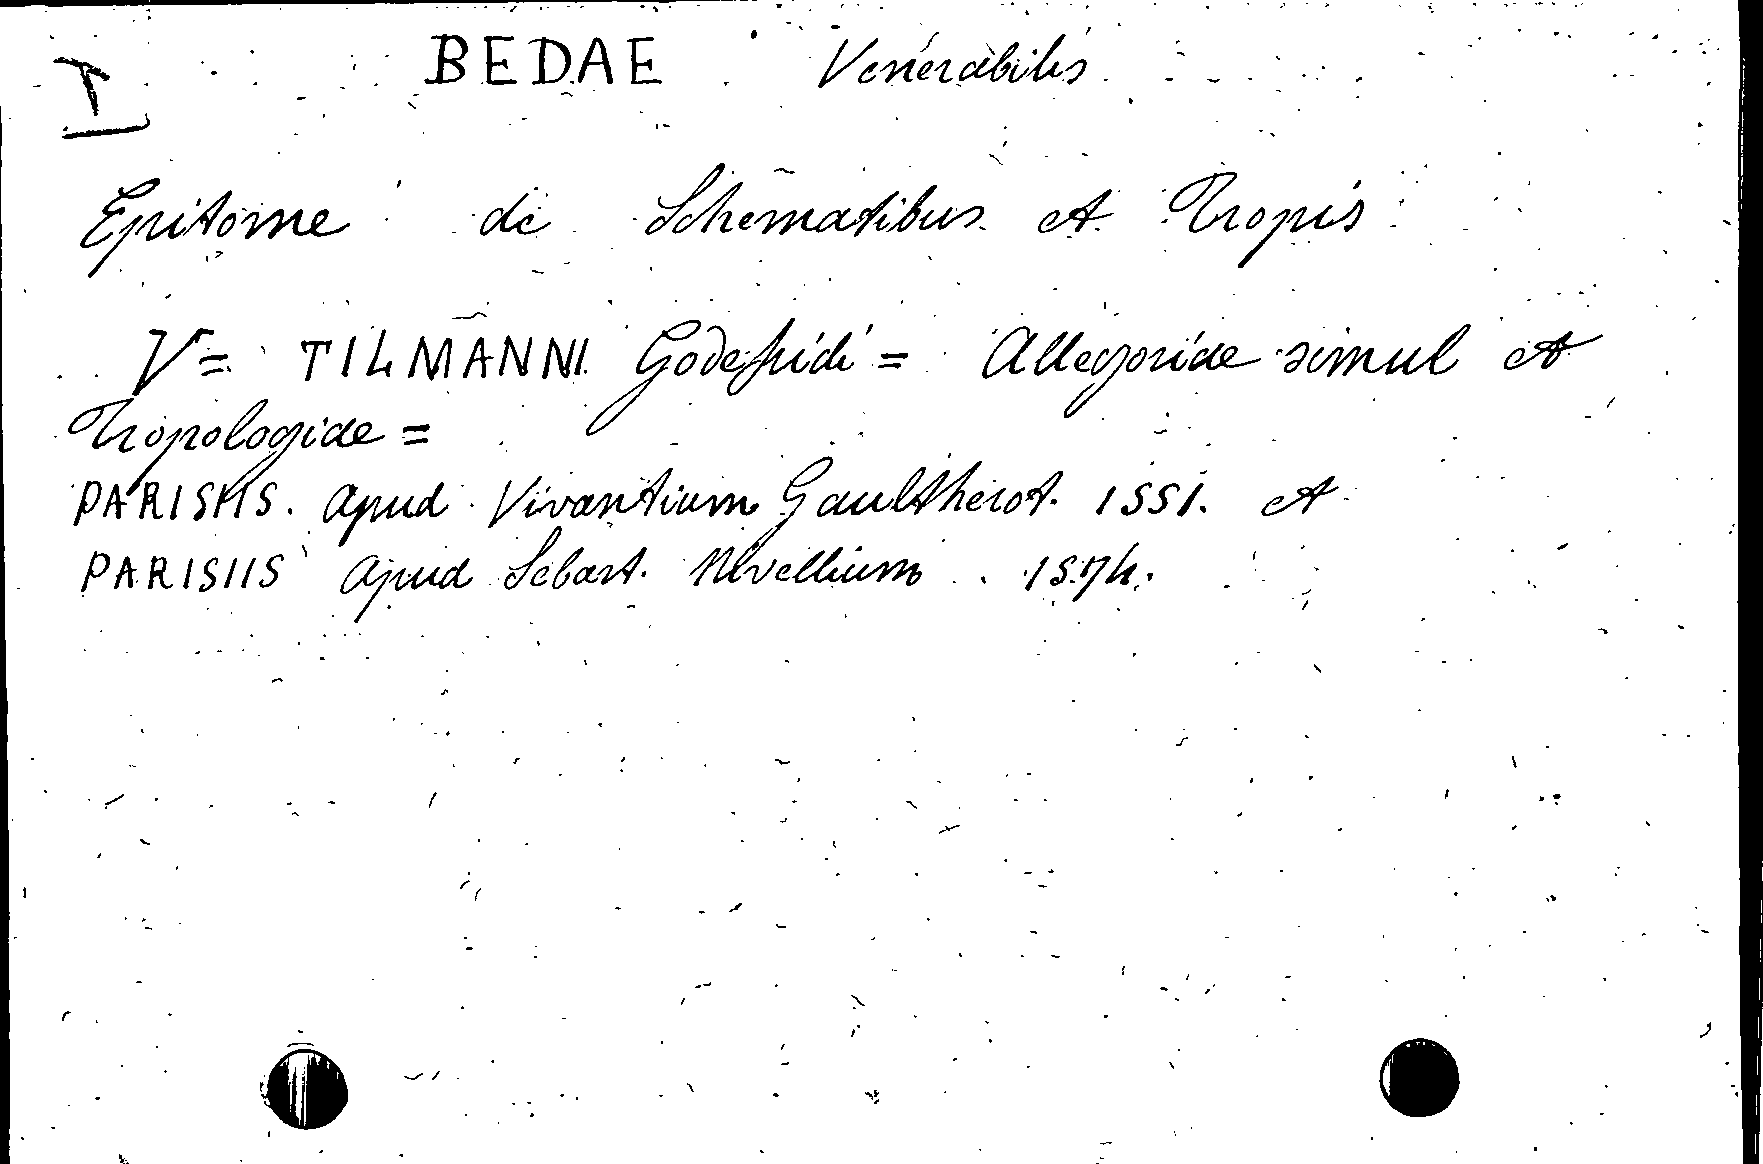 T
BEDAE Venerabilis
Epitome de Schematibus et Tropis
V= TILMANNI Godefridi = Allegoriae simul et
Tropologiae =
PARISIIS. apud Vivantium Gaultherot. 1551. et
PARISIIS apud Sebast. Nivellium. 1574.